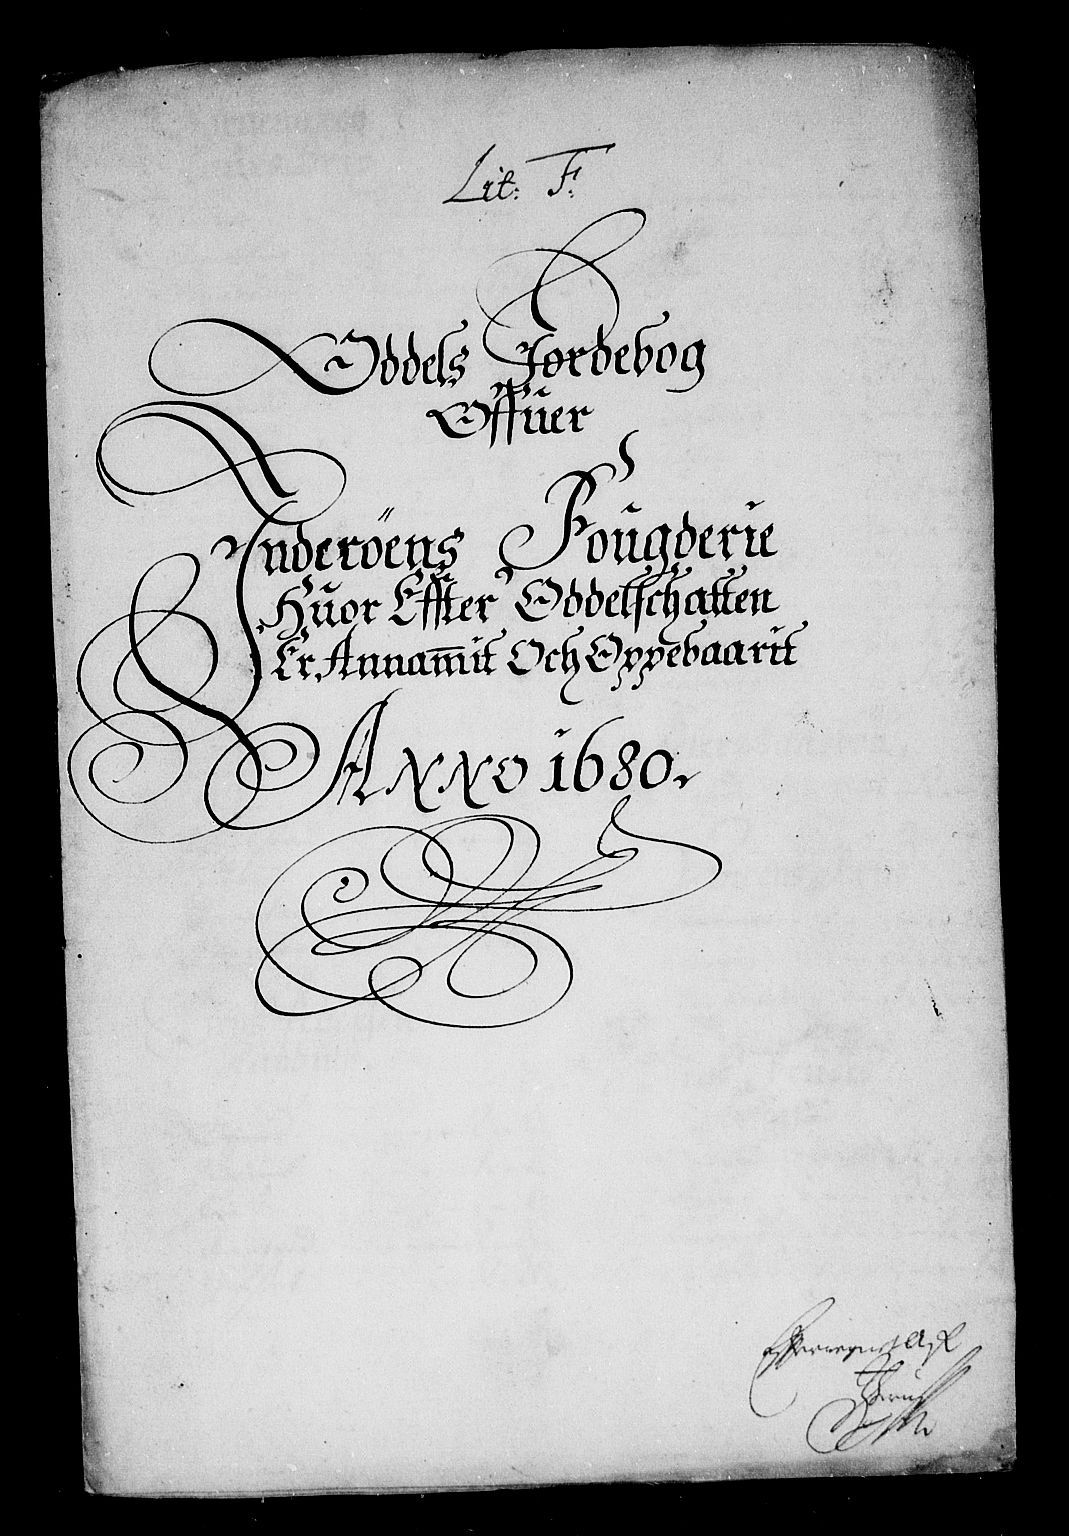 Lit: F:
Oddels Jordebog
Offuer
Inderöens Fougderie
Huor Effter Oddelschatten
Er Annam̅it Och Oppebaarit
Anno 1680.